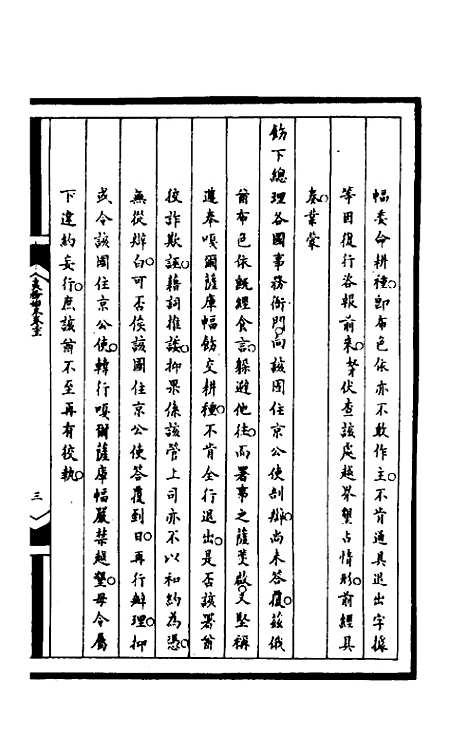 幅委命耕種即布色依亦不敢作主不肯通具退出字據
等因復行咨報前來。等伏查該處越界墾占情形前經具
奏業蒙
飭下總理各國事務衙門向該國住京公使剖辦尚未答復茲俄
酋布色依旣經食言躱避他往而署事之薩茭啟又堅稱
遵奉嗄爾薩庫幅飭交耕種不肯全行退出是否該署酋
狡詐欺誣藉詞推諉抑果係該管上司亦不以和約為憑
無從辦白可否俟該國住京公使答覆到日再行辦理抑
或令該國住京公使轉行嗄爾薩庫幅嚴禁越墾毋令屬
下違約妄行庶該酋不至再有狡執
三